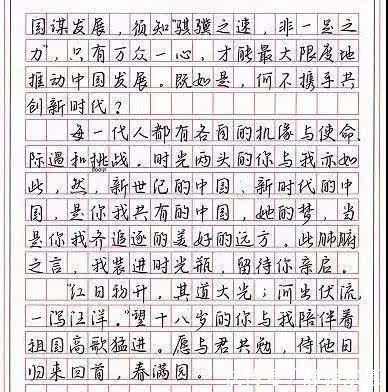 国谋发展，须知"骐骥之速，非一足之
力"，只有万众一心，才能最大限度地
推动中国发展。既如是，何不携手共
创新时代？
每一代人都有各自的机缘与使命、
际遇和挑战，时光两头的你与我亦如
此，然，新世纪的中国、新时代的中
国，是你我共有的中国，她的梦，当
是你我齐追逐的美好的远方。此肺腑
之言，我装进时光瓶，留待你亲启。
"红日初升，其道大光；河出伏流，
一泻汪洋。"望十八岁的你与我陪伴着
祖国高歌猛进。愿与君共勉，待他日
归来回首，春满园。